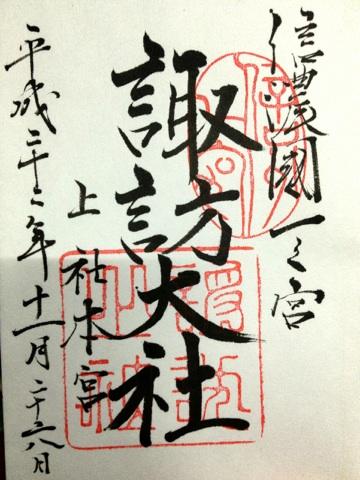 信濃國一之宮
諏訪大社
上社本宮
平成二十二年十一月二十六日